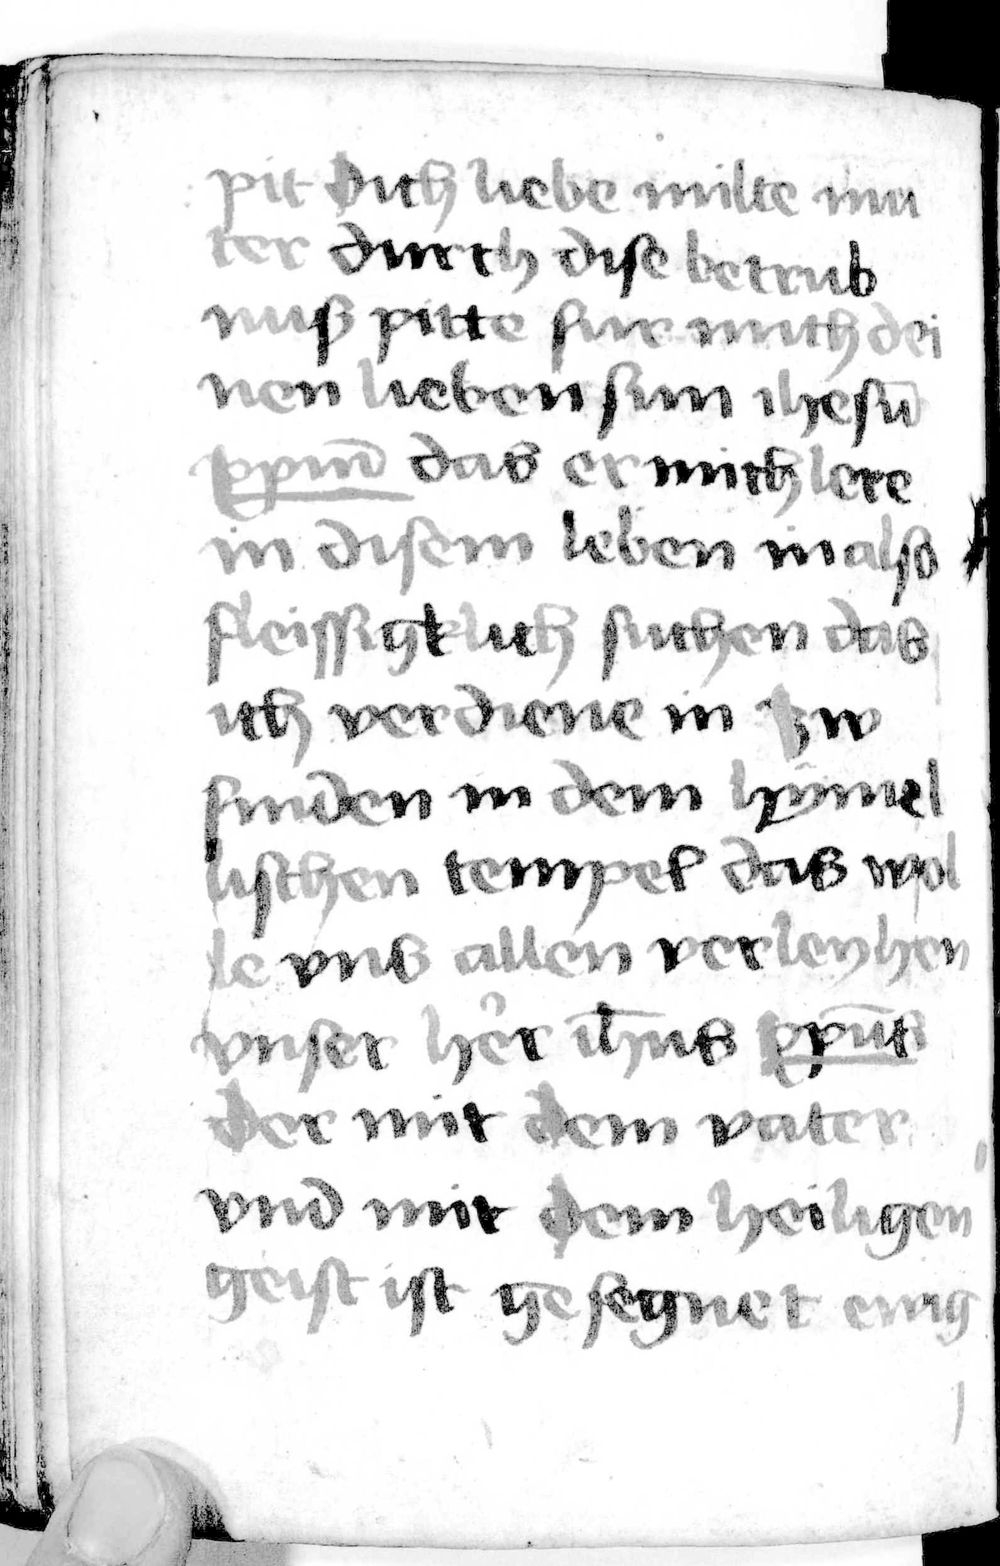 pit dich liebe milte mu
ter durch dise betrub
nuß pitte fur mich dei
nen lieben sun ihesū
xpm̄ das er mich lere
in disem leben in also
fleissigklich suchen das
ich verdiene in zw
finden in dem hÿmel
lischen tempel das wol
le vns allen verleyhen
vnser her ih̄us xpūs
der mit dem vater
vnd mit dem heiligen
geist ist gesegnet ewig